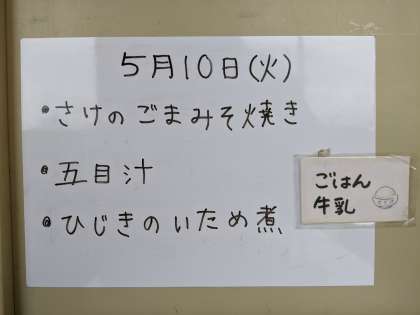 5月10日(火)
・さけのごまみそ焼き
・五目汁
・ひじきのいため煮
ごはん
牛乳